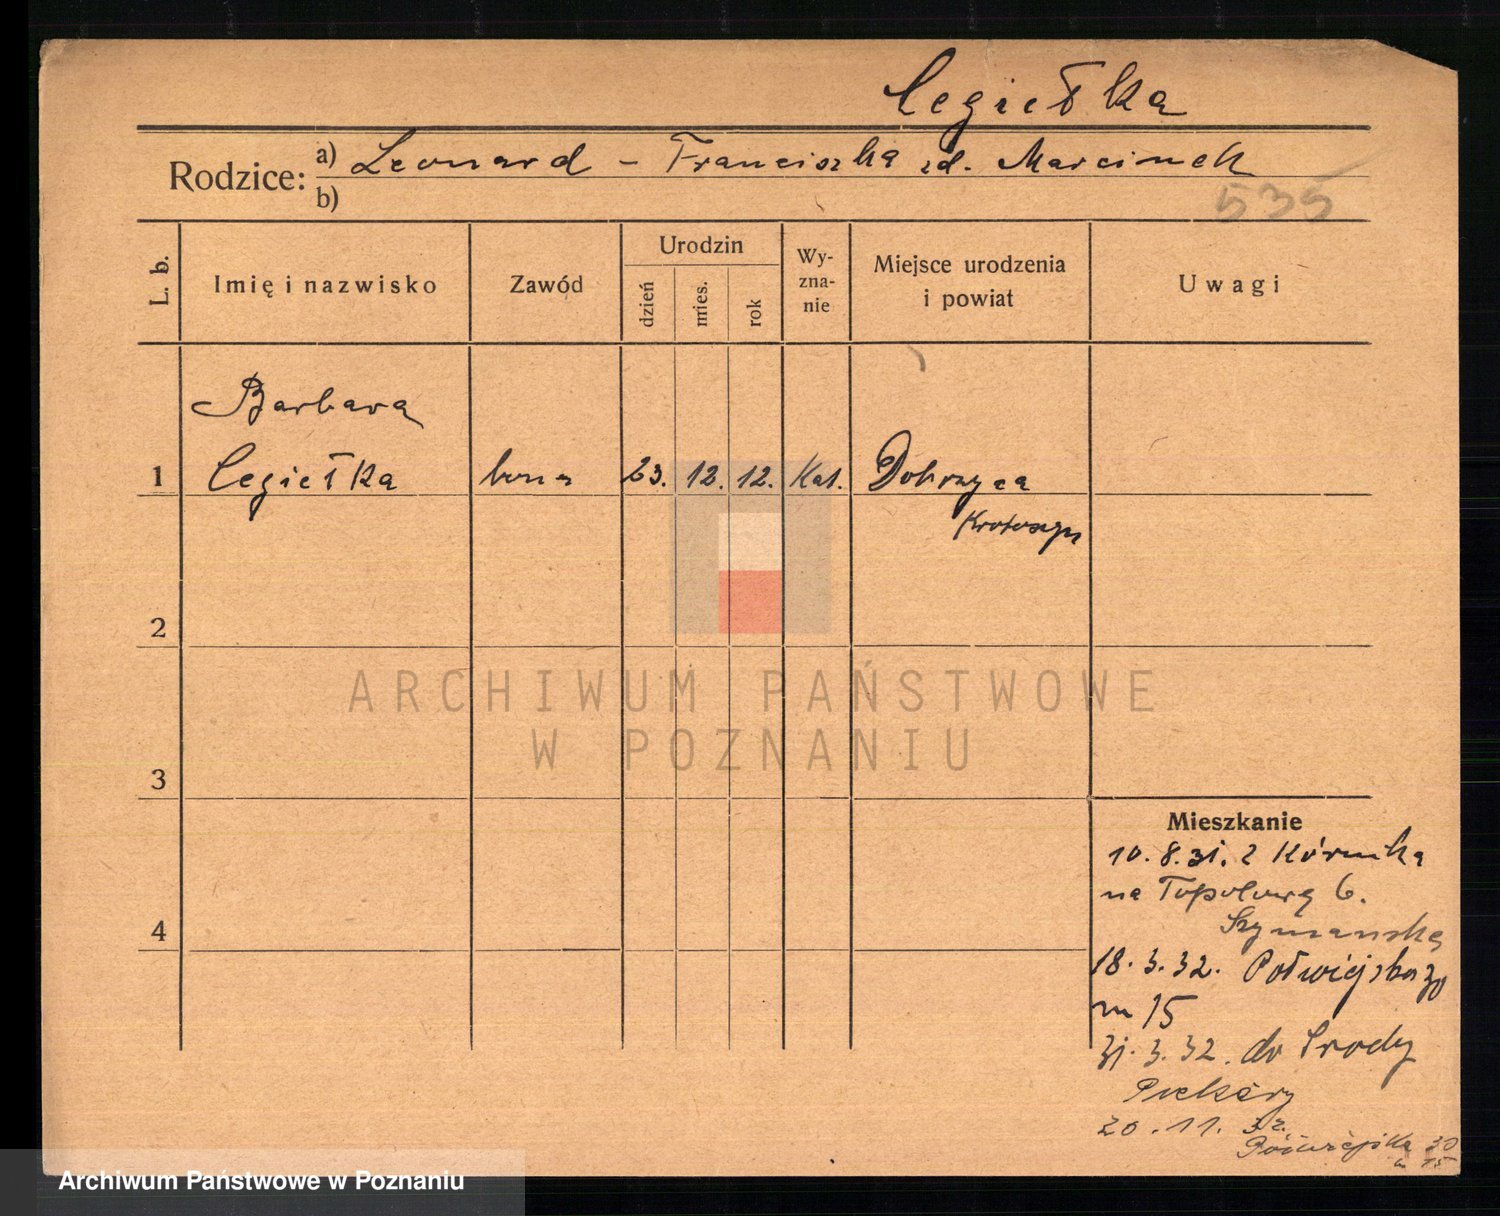 Legiełka
Rodzice: a) Leonard - Franciszka zd. Marcinek
b)
535
L. b. Imię i nazwisko Zawód Urodzin dzień mies. rok Wy-zna-nie Miejsce urodzenia i powiat Uwagi
Barbara
1 Legiełka bona 23. 12. 12. Kat. Dobrzyca
Krotoszyn
2
ARCHIWUM PAŃSTWOWE
W POZNANIU
3
4
Mieszkanie
10.8.31. z Kórnika
na Topolową 6.
Szymańska
18.3.32. Półwiejska 30
m 15
31.3.32. do Środy
Piekary
20.11.32.
Półwiejska 30
m 15
Archiwum Państwowe w Poznaniu